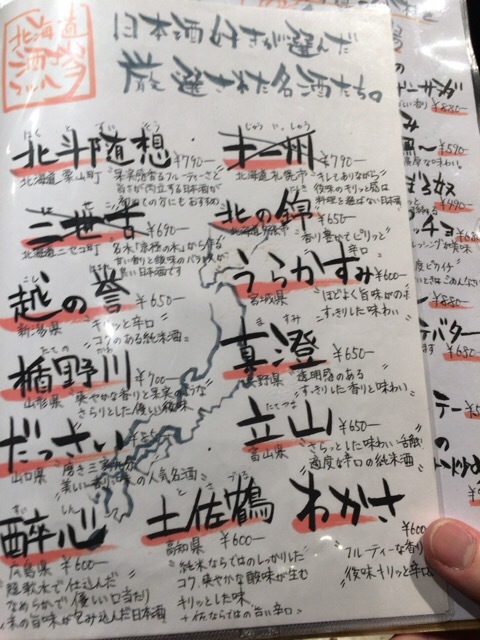 北海道
酒
日本酒好きが選んだ
厳選された名酒たち。
ほく と ずい そう
北斗随想 ¥790-
北海道 栗山町
果実感香るフルーティーさと
旨さが両立する日本酒が
初めての方にもおすすめ
じゅういっしゅう
十一州 ¥790-
北海道 札幌市
キレもありながら
後味のキリッと感は
料理を選ばない日本酒
二世古
北海道ニセコ町
名水「京極の水」から作る
甘い香りと酸味のバランスが
良い日本酒です
北の錦 ¥690-
香り豊かでピリッと
辛口
こし ほまれ
越の誉 ¥650-
新潟県
キリッと辛口
コクのある純米酒
うらかすみ ¥600-
宮城県
ほどよく旨味がのった
すっきりした味わい
たての
楯野川 ¥700-
山形県
爽やかな香りと果実のような
さらりとした優しい後味
ま すみ
真澄 ¥650-
長野県
透明感のある
すっきりした香りと味わい
だっさい
山口県
磨き三割九分
美しい香味の人気名酒
たてやま
立山 ¥650-
富山県
さらっとした味わい
適度な辛口の純米酒
すいしん
酔心
広島県 ¥600-
超軟水で仕込んだ
なめらかで優しい口当たり
米の旨味が包み込んだ日本酒
と さ づる
土佐鶴
高知県 ¥600-
純米ならではのしっかりした
コク、爽やかな酸味が生む
キリッとした味
土佐ならではの旨い辛口
わかさ
¥600-
フルーティーな香り
後味キリッと辛口
サンダ
¥880-
¥590
¥990
¥680
バター
¥680